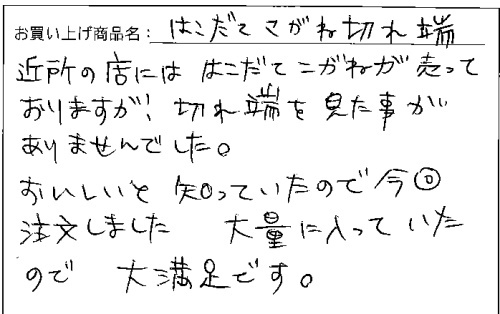 お買い上げ商品名：はこだてこがね切れ端
近所の店には はこだてこがねが 売って
おりますが、切れ端を見た事が
ありませんでした。
おいしいと 知っていたので 今回
注文しました 大量に入っていた
ので 大満足です。